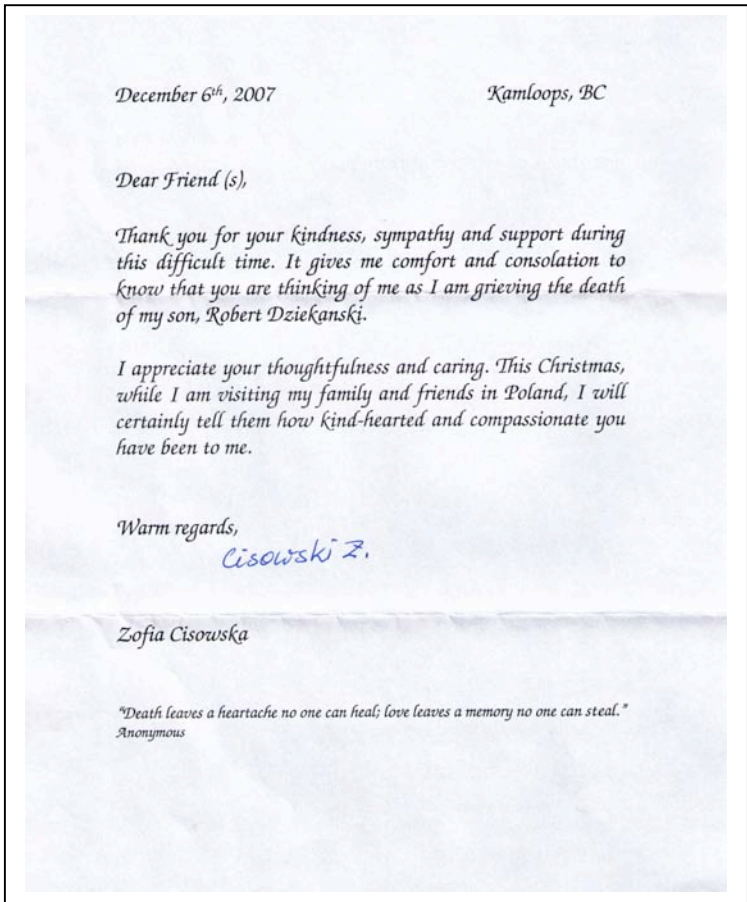 December 6th, 2007 Kamloops, BC
Dear Friend (s),
Thank you for your kindness, sympathy and support during
this difficult time. It gives me comfort and consolation to
know that you are thinking of me as I am grieving the death
of my son, Robert Dziekanski.
I appreciate your thoughtfulness and caring. This Christmas,
while I am visiting my family and friends in Poland, I will
certainly tell them how kind-hearted and compassionate you
have been to me.
Warm regards,
Cisowski Z.
Zofia Cisowska
"Death leaves a heartache no one can heal; love leaves a memory no one can steal."
Anonymous